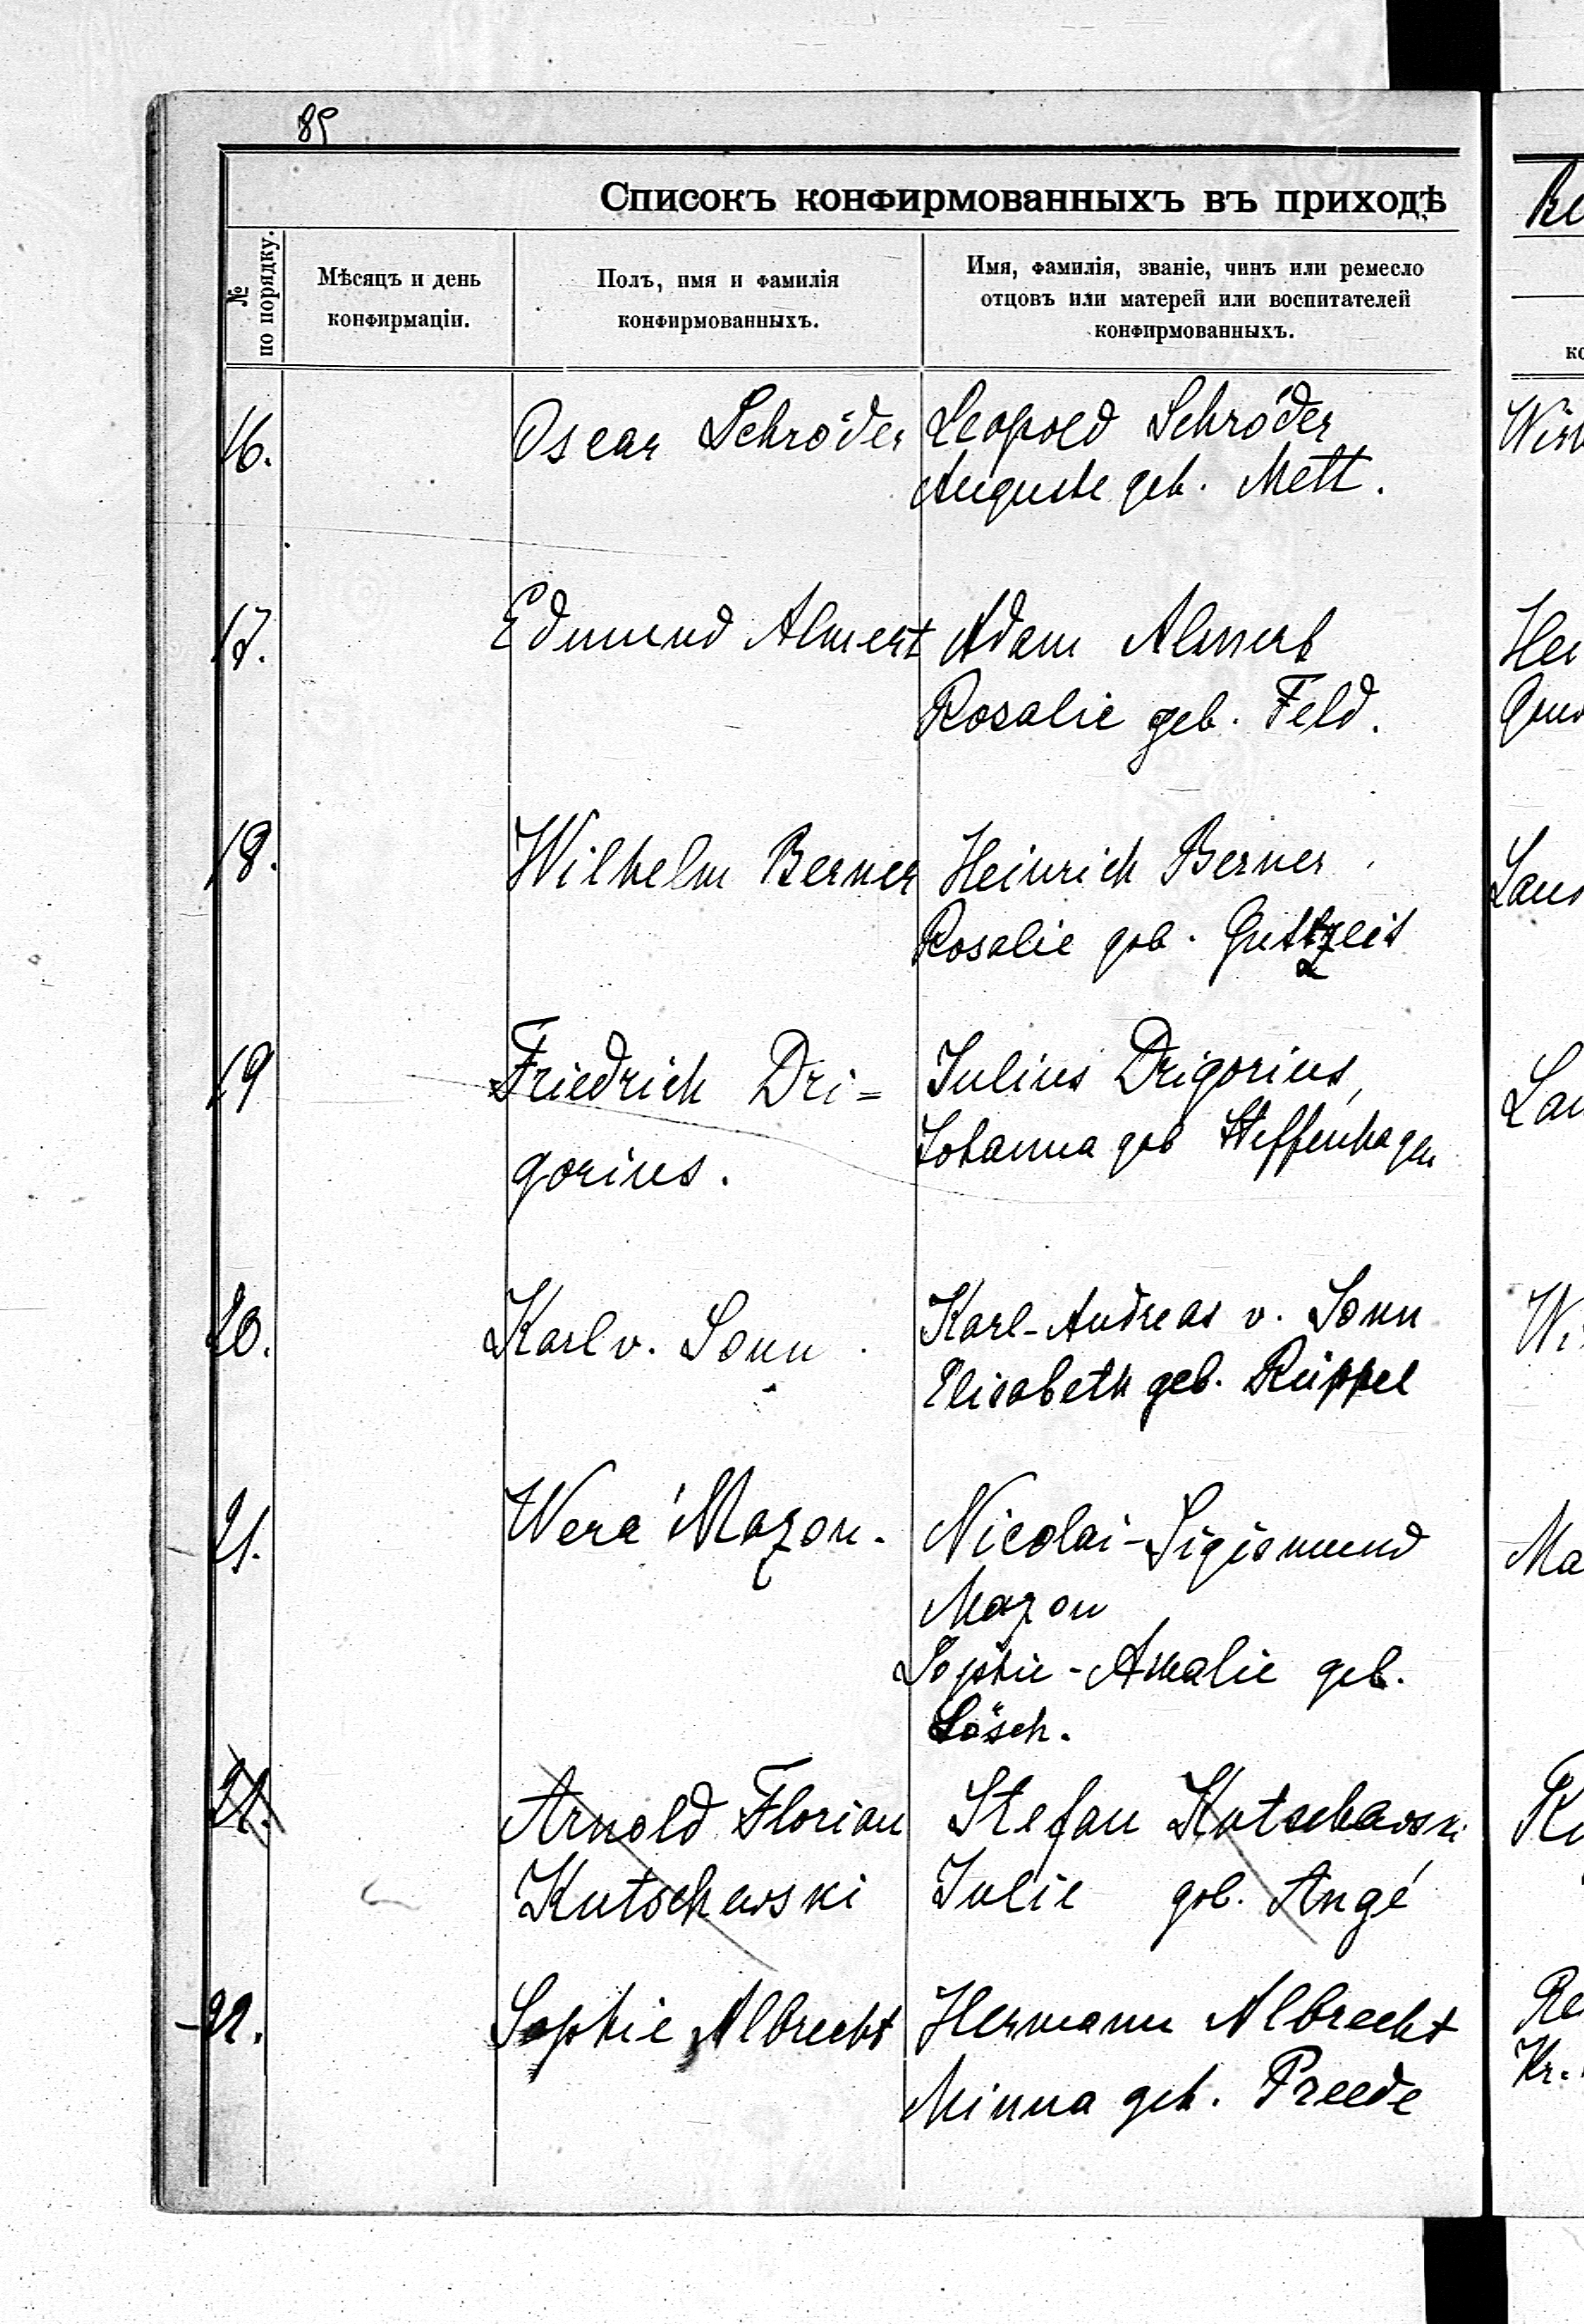 89
Списокъ конфирмованныхъ въ приходѣ
№ по порядку.
Мѣсяцъ и день
конфирмаціи.
Полъ, имя и фамилія
конфирмованныхъ.
Имя, фамилія, званіе, чинъ или ремесло
отцовъ или матерей или воспитателей
конфирмованныхъ.
16.
Oscar Schröder
Leopold Schröder
Auguste geb. Mett.
17.
Edmund Almert
Adam Almert
Rosalie geb. Feld.
18.
Wilhelm Berner
Heinrich Berner
Rosalie geb. Guttzeit
19
Friedrich Dri=
gorius.
Julius Drigorius,
Johanna geb Steffenhagen
20.
Karl v. Sonn.
Karl-Andreas v. Sonn
Elisabeth geb. Rüppel
21.
Wera Mazon.
Nicolai-Sigismund
Mazon
Sophie-Amalie geb.
Lösch.
21.
Arnold Florian
Kutschewski
Stefan Kutschewski
Julie geb. Angé
22.
Sophie Albrecht
Hermann Albrecht
Minna geb. Preede